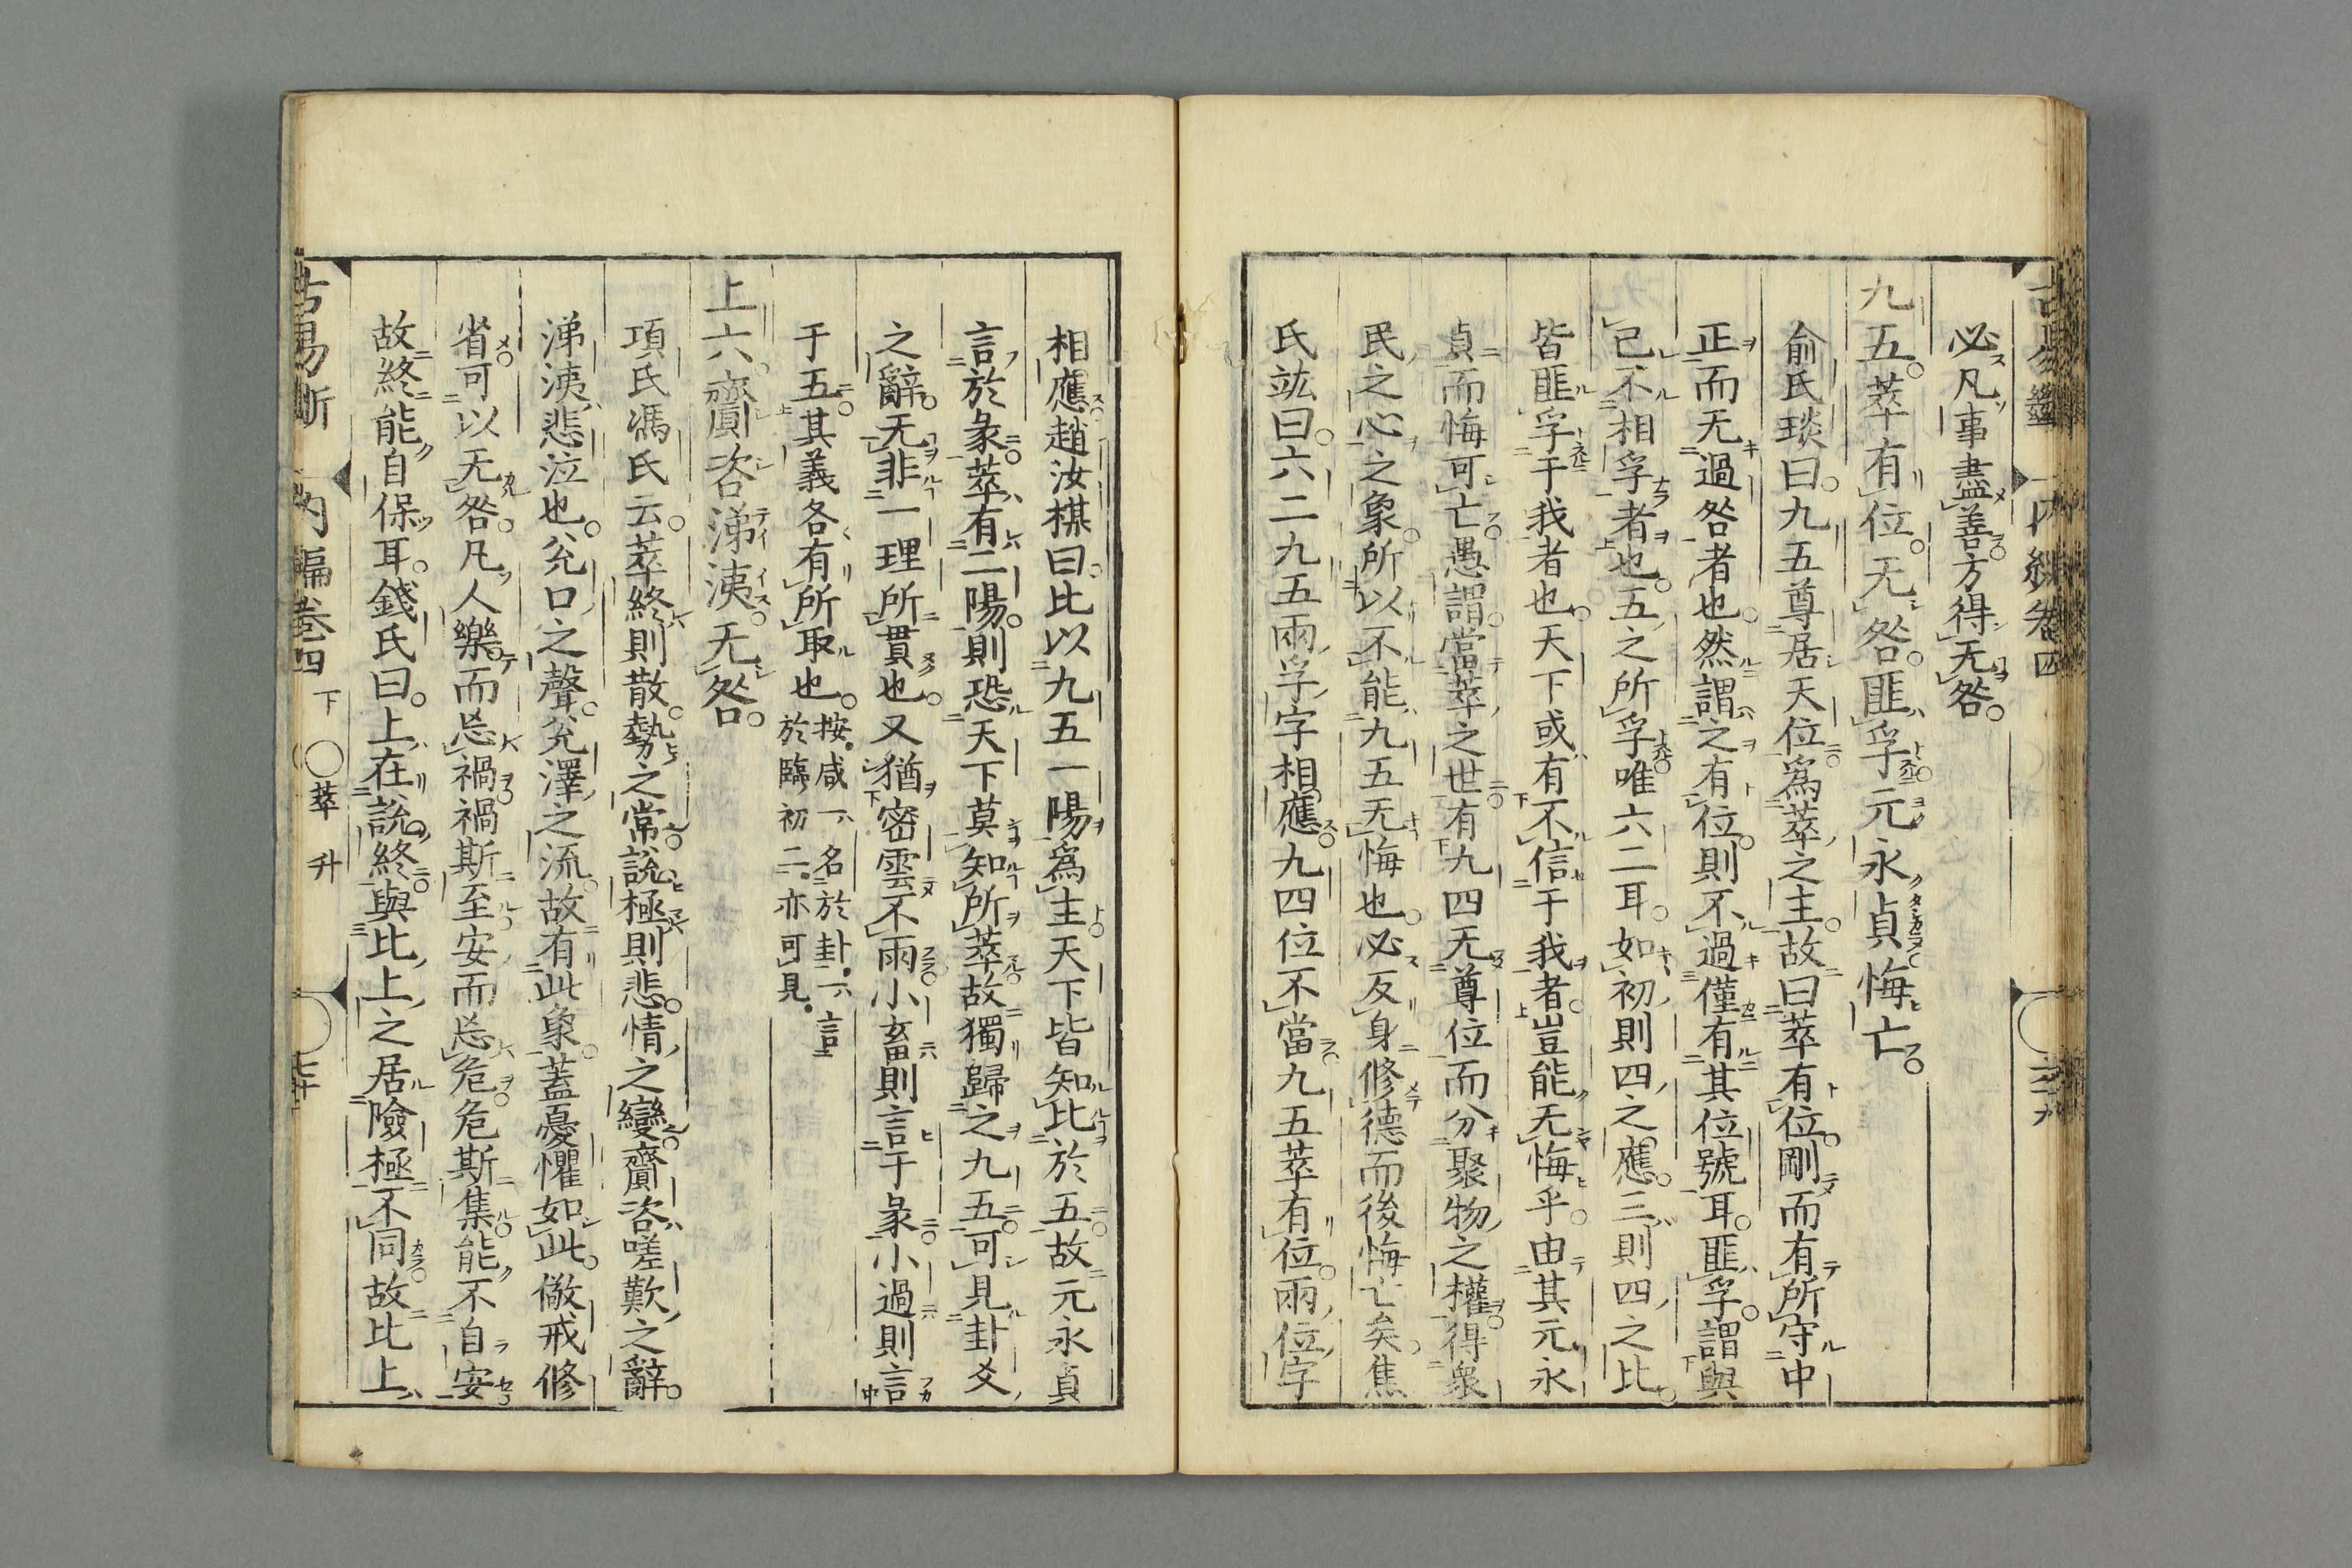 必凡事盡善方得无咎
九五萃有位无咎匪孚元永貞悔亡
俞氏琰曰九五尊居天位爲萃之主故曰萃有位剛而有所守中
正而无過咎者也然謂之有位則不過僅有其位號耳匪孚謂與
已不相孚者也五之所孚唯六二耳如初則四之應三則四之比
皆匪孚于我者也天下或有不信于我者豈能无悔乎由其元永
貞而悔可亡愚謂當萃之世有九四无尊位而分聚物之權得衆
民之心之象所以不能九五无悔也必反身修德而後悔亡矣焦
氏竑曰六二九五兩孚字相應九四位不當九五萃有位兩位字
相應趙汝楳曰比以九五一陽爲主天下皆知比於五故元永貞
言於彖萃有二陽則恐天下莫知所萃故獨歸之九五可見卦爻
之辭无非一理所貫也又猶密雲不雨小畜則言于彖小過則言
于五其義各有所取也按咸一名於卦一言
於臨初二亦可見
上六齎咨涕洟无咎
項氏馮氏云萃終則散勢之常說極則悲情之變齎咨嗟歎之辭
涕洟悲泣也兌口之聲兌澤之流故有此象蓋憂懼如此儆戒修
省可以无咎凡人樂而忘禍禍斯至安而忘危危斯集能不自安
故終能自保耳錢氏曰上在說終與比上之居險極不同故比上
古易斷 內編卷四 下 萃 升 七十